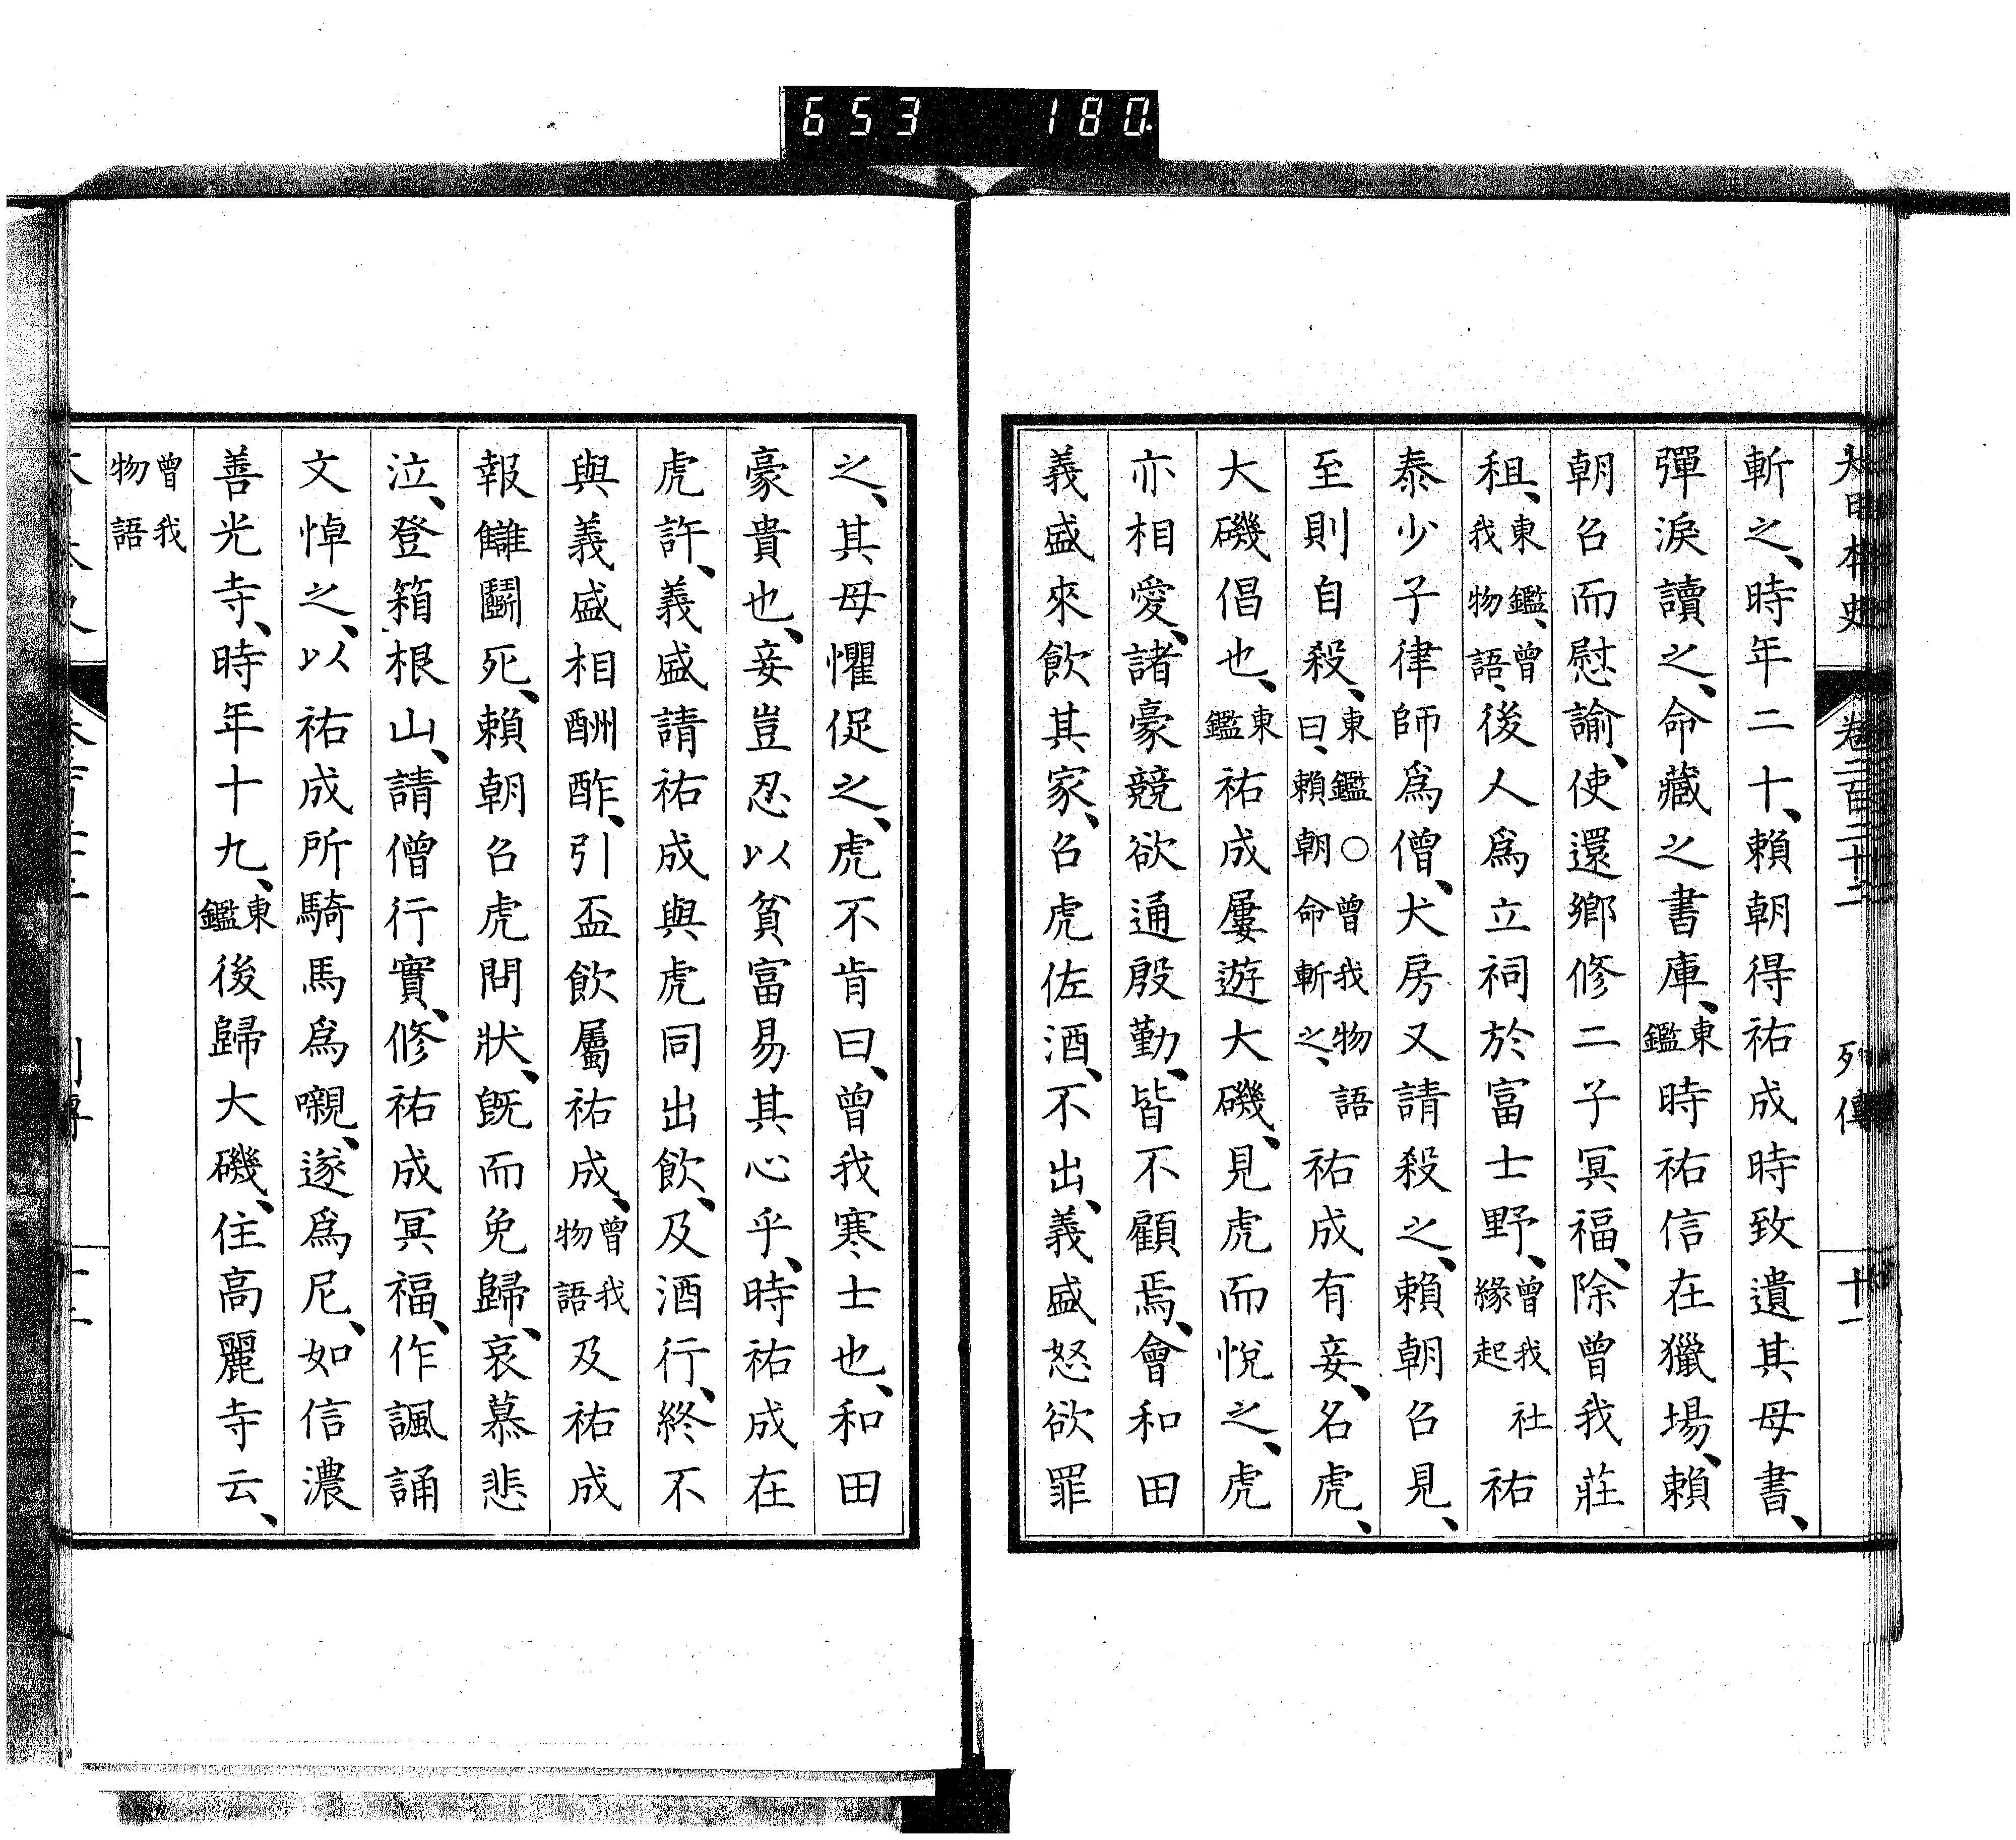 653 180.
大日本史 卷二百二十二 列傳 十一
斬之、時年二十、賴朝得祐成時致遺其母書、
彈淚讀之、命藏之書庫、東鑑時祐信在獵場、賴
朝召而慰諭、使還鄉修二子冥福、除曾我莊
租、東鑑、曾我物語、後人爲立祠於富士野、曾我社緣起祐
泰少子律師爲僧、犬房又請殺之、賴朝召見、
至則自殺、東鑑○曾我物語曰、賴朝命斬之、祐成有妾、名虎、
大磯倡也、東鑑祐成屢遊大磯、見虎而悅之、虎
亦相愛、諸豪競欲通殷勤、皆不顧焉、會和田
義盛來飲其家、召虎佐酒、不出、義盛怒欲罪
之、其母懼促之、虎不肯曰、曾我寒士也、和田
豪貴也、妾豈忍以貧富易其心乎、時祐成在
虎許、義盛請祐成與虎同出飲、及酒行、終不
與義盛相酬酢、引盃飲屬祐成、曾我物語及祐成
報讎鬬死、賴朝召虎問狀、既而免歸、哀慕悲
泣、登箱根山、請僧行實、修祐成冥福、作諷誦
文悼之、以祐成所騎馬爲嚫、遂爲尼、如信濃
善光寺、時年十九、東鑑後歸大磯、住高麗寺云、
曾我物語